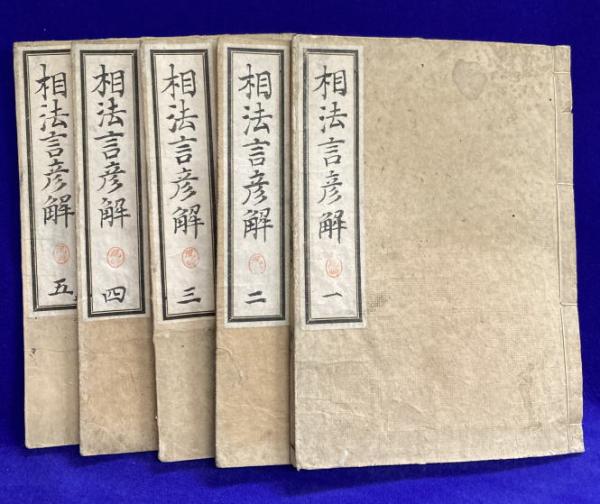 相法言彦解 一
相法言彦解 二
相法言彦解 三
相法言彦解 四
相法言彦解 五